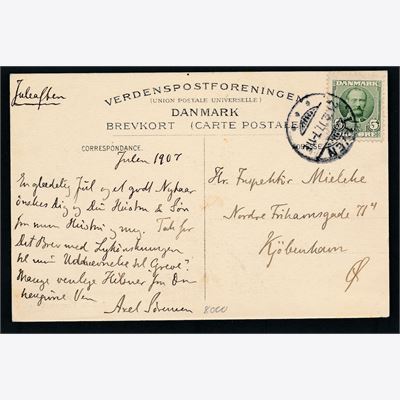 Juleaften
VERDENSPOSTFORENINGEN
(UNION POSTALE UNIVERSELLE)
DANMARK
BREVKORT (CARTE POSTALE)
DANMARK
5 ØRE
CORRESPONDANCE.
Julen 1907
En glædelig Jul og et godt Nytaar
ønskes Dig og Din Hustru & Søn
fra min Hustru og mig. Tak for
Dit Brev med Lykønskningen
til min Udnævnelse til Greve?
Mange venlige Hilsener fra Din
hengivne Ven
Axel Sørensen
8000
Hr. Inspektør Mielche
Nordre Frihavnsgade 71 4
Kjöbenhavn
Ø